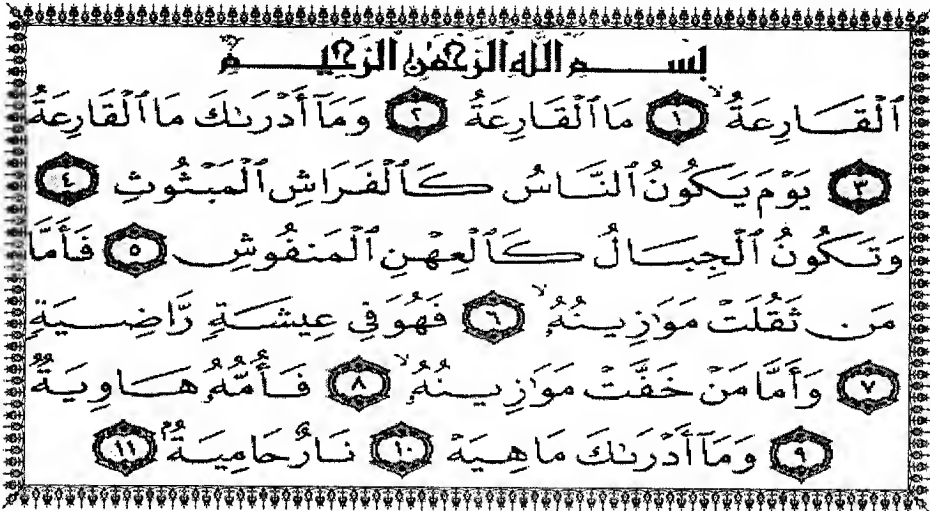 بِسْمِ اللَّهِ الرَّحْمَٰنِ الرَّحِيمِ
ٱلْقَارِعَةُ ١ مَا ٱلْقَارِعَةُ ٢ وَمَآ أَدْرَىٰكَ مَا ٱلْقَارِعَةُ
٣ يَوْمَ يَكُونُ ٱلنَّاسُ كَٱلْفَرَاشِ ٱلْمَبْثُوثِ ٤
وَتَكُونُ ٱلْجِبَالُ كَٱلْعِهْنِ ٱلْمَنفُوشِ ٥ فَأَمَّا
مَن ثَقُلَتْ مَوَٰزِينُهُۥ ٦ فَهُوَ فِى عِيشَةٍ رَّاضِيَةٍ
٧ وَأَمَّا مَنْ خَفَّتْ مَوَٰزِينُهُۥ ٨ فَأُمُّهُۥ هَاوِيَةٌ
٩ وَمَآ أَدْرَىٰكَ مَا هِيَهْ ١٠ نَارٌ حَامِيَةٌۢ ١١